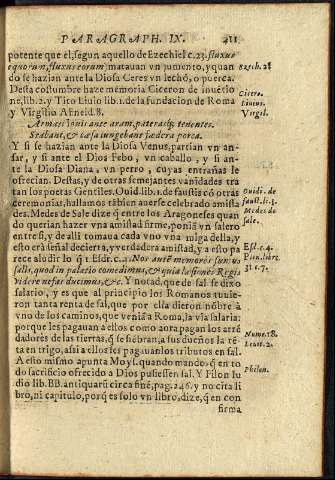 PARAGRAPH. IX. 211
potente que el, segun aquello de Ezechiel c.23. fluxus
equorum, fluxus eorum, matauan vn jumento, y quan
do se hazian ante la Diosa Ceres vn lechõ, o puerca.
Desta costumbre haze memoria Ciceron de inuẽtio
ne, lib.2. y Tito Liuio lib. 1. de la fundacion de Roma
y Virgilio Afneid.8.
Armati Iouis ante aram, pateraśq; tenentes.
Stabant, & cæsa iungebant fœdera porca.
Y si se hazian ante la Diosa Venus, partian vn an-
sar, y si ante el Dios Febo, vn caballo, y si an-
te la Diosa Diana, vn perro, cuyas entrañas le
ofrecian. Destas, y de otras semejantes vanidades tra
tan los poetas Gentiles. Ouid. lib. 1. de faustis cõ otras
ceremonias, hallamos tãbien auerse celebrado amista
des. Medes de Sale dize q̃ entre los Aragoneses quan
do querian hazer vna amistad firme, poniã vn salero
entre si, y de alli tomaua cada vno vna miga della, y
esto erà señal decierta, y verdadera amistad, y a esto pa
rece aludir lo q̃ 1. Esdr. c.4. Nos autẽ memores sumus
salis, quod in palatio comedimus, & quia læsiones Regis
videre nefas ducimus, &c. Y notad, que de sal se dixo
salario, y es que al principio los Romanos tuuie-
ron tanta renta de sal, que por ella dieron nõbre à
vno de los caminos, que veniã a Roma, la via salaria:
porque les pagauan a ellos como aora pagan los arrẽ
dadores de las tierras, q̃ se siẽbran, a sus dueños la rẽ
ta en trigo, assi a ellos les pagauan los tributos en sal.
A esto mismo apunta Moysẽ, quando mando, q̃ en to
do sacrificio ofrecido a Dios pusiessen sal. Y Filon Iu
dio lib. BB. antiquarũ circa finẽ, pag. 246. y no cita li
bro, ni capitulo, porq̃ es solo vn libro, dize, q̃ en con
firma
Ezech. 23
Cicero.
Liuius.
Virgil.
Ouidi. de
faust. li. 1.
Medes de
sale.
Esd. c. 4.
Plin. libr.
31 c. 7.
Nume. 18.
Leuit. 2.
Philon.